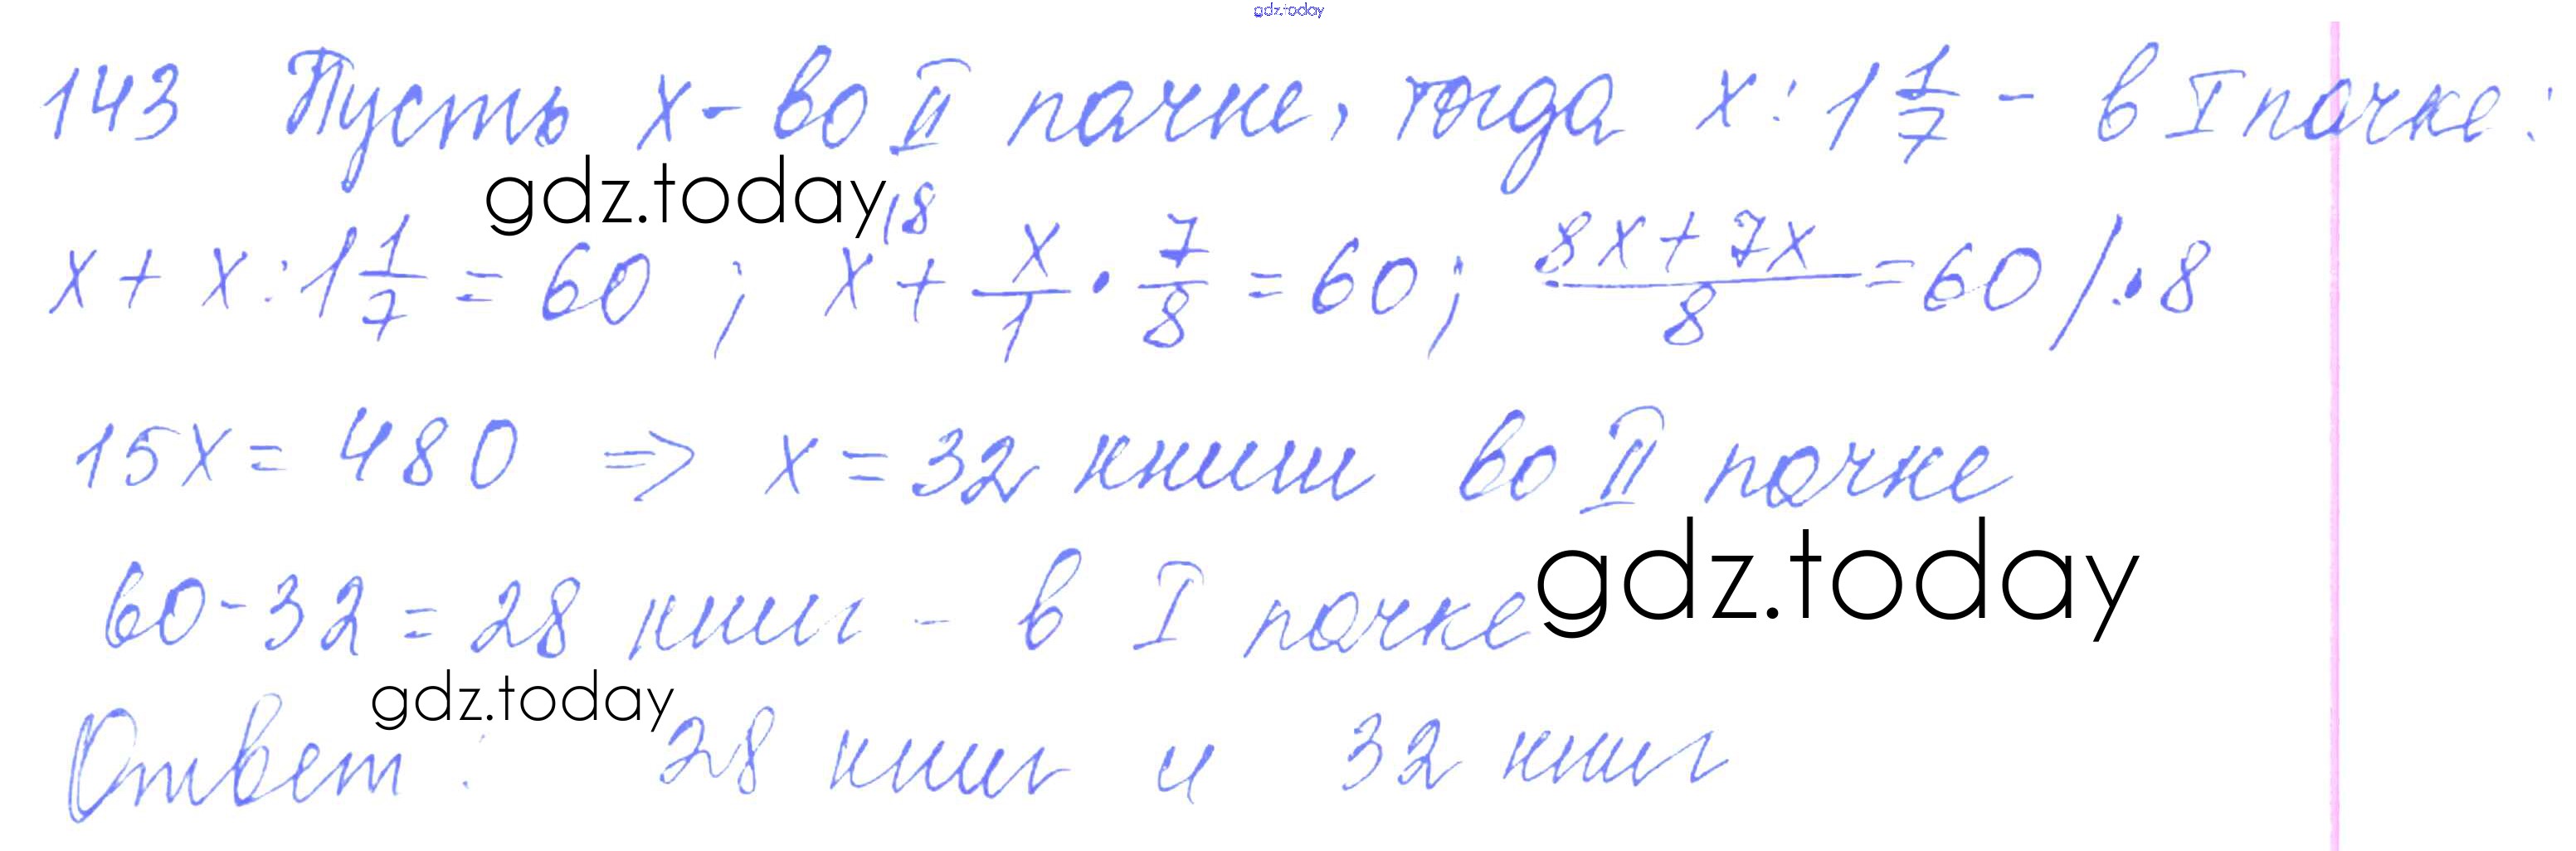 gdz.today
143 Пусть x - во II пачке, тогда x : 1 1/7 - в I пачке:
gdz.today
x + x : 1 1/7 = 60 ; x^(8 + x/1 · 7/8 = 60 ; (8x + 7x)/8 = 60 / · 8
15x = 480 => x = 32 книги во II пачке
gdz.today
60 - 32 = 28 книг - в I пачке
gdz.today
Ответ: 28 книг и 32 книг